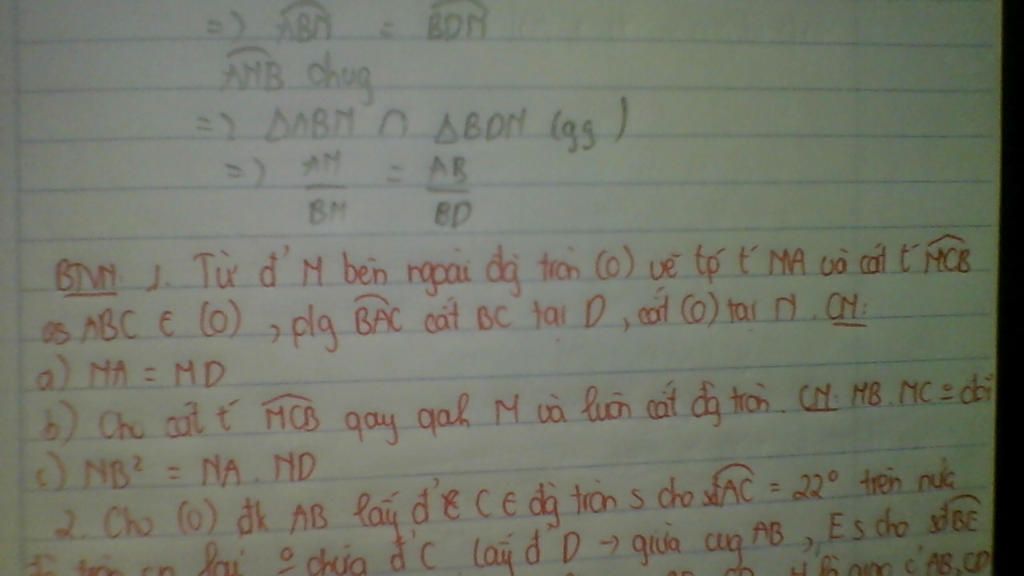 => ABM = BDM
AMB chug
=> ΔABM ∩ ΔBDM (gg)
=> AM/BM = AB/BD
BTVN: 1. Từ đ' M bên ngoài đg tròn (O) vẽ tp t' MA và cát t' MCB
ABC ∈ (O), plg BAC cắt BC tại D, cắt (O) tại N. CM:
a) MA = MD
b) Cho cát t' MCB quay qah M và luôn cắt đg tròn. CM: MB. MC =
c) NB² = NA. ND
2. Cho (O) đk AB lấy đ' C ∈ đg tròn s cho sđAC = 22° trên nửc
đg tròn cn lại º chứa đ' C lấy đ' D → giữa cug AB, E s cho sđBE
AB, CD